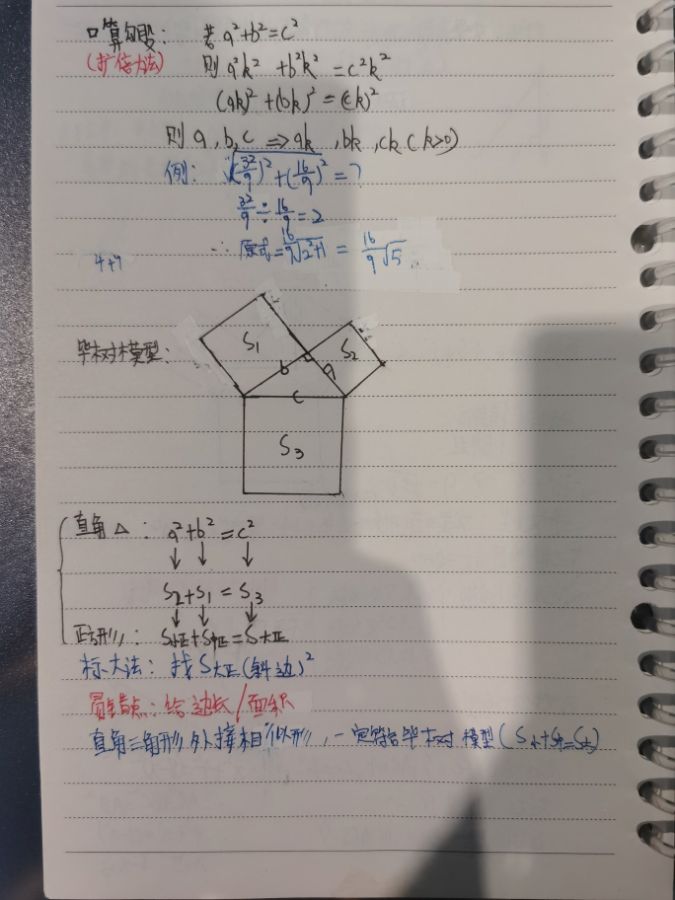 口算勾股: 若a²+b²=c²
(扩倍方法) 则 a²k² +b²k² =c²k²
(ak)²+(bk)²=(ck)²
则 a,b,c ⇒ ak ,bk ,ck (k>0)
例: √(32/9)²+(16/9)² =?
32/9÷16/9=2
∴原式=16/9√2²+1 = 16/9√5
4+9
毕树模型:
S₁
S₂
b
a
c
S₃
直角△: a²+b²=c²
↓ ↓ ↓
S₂+S₁=S₃
↓ ↓ ↓
正方形: S小正+S中正=S大正
标大法: 找S大正(斜边)²
易错点: 给边长/面积
直角三角形外接相似形,一定符合毕树模型(S小+S中=S大)